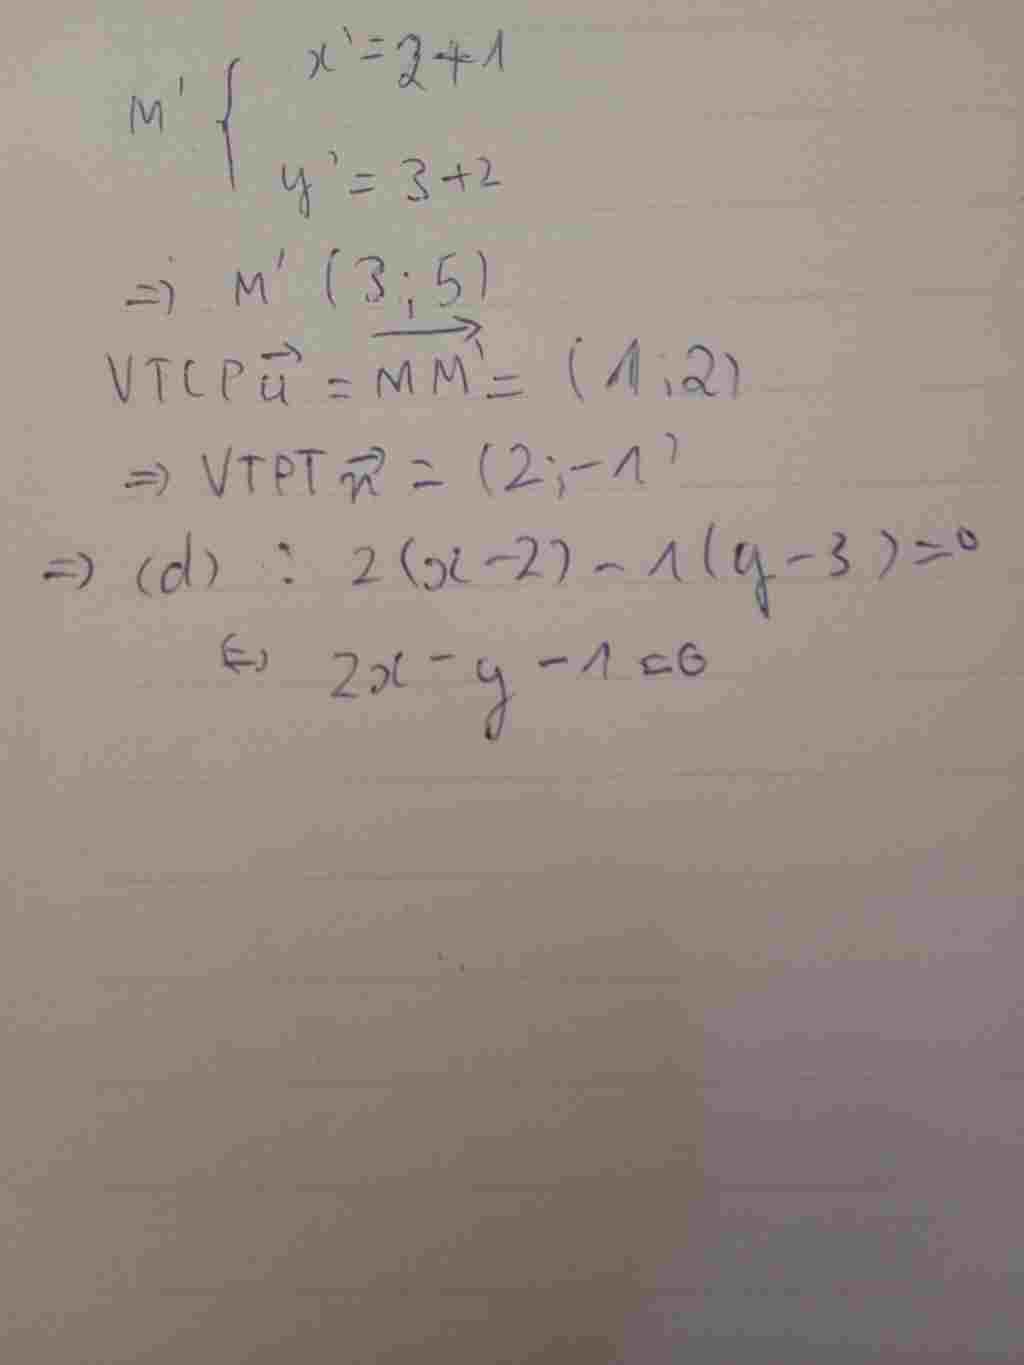 M' { x' = 2+1
y' = 3+2
=> M' (3;5)
VTCP u⃗ = MM'⃗ = (1;2)
=> VTPT n⃗ = (2;-1)
=> (d) : 2(x-2) - 1(y-3) = 0
<=> 2x - y - 1 = 0